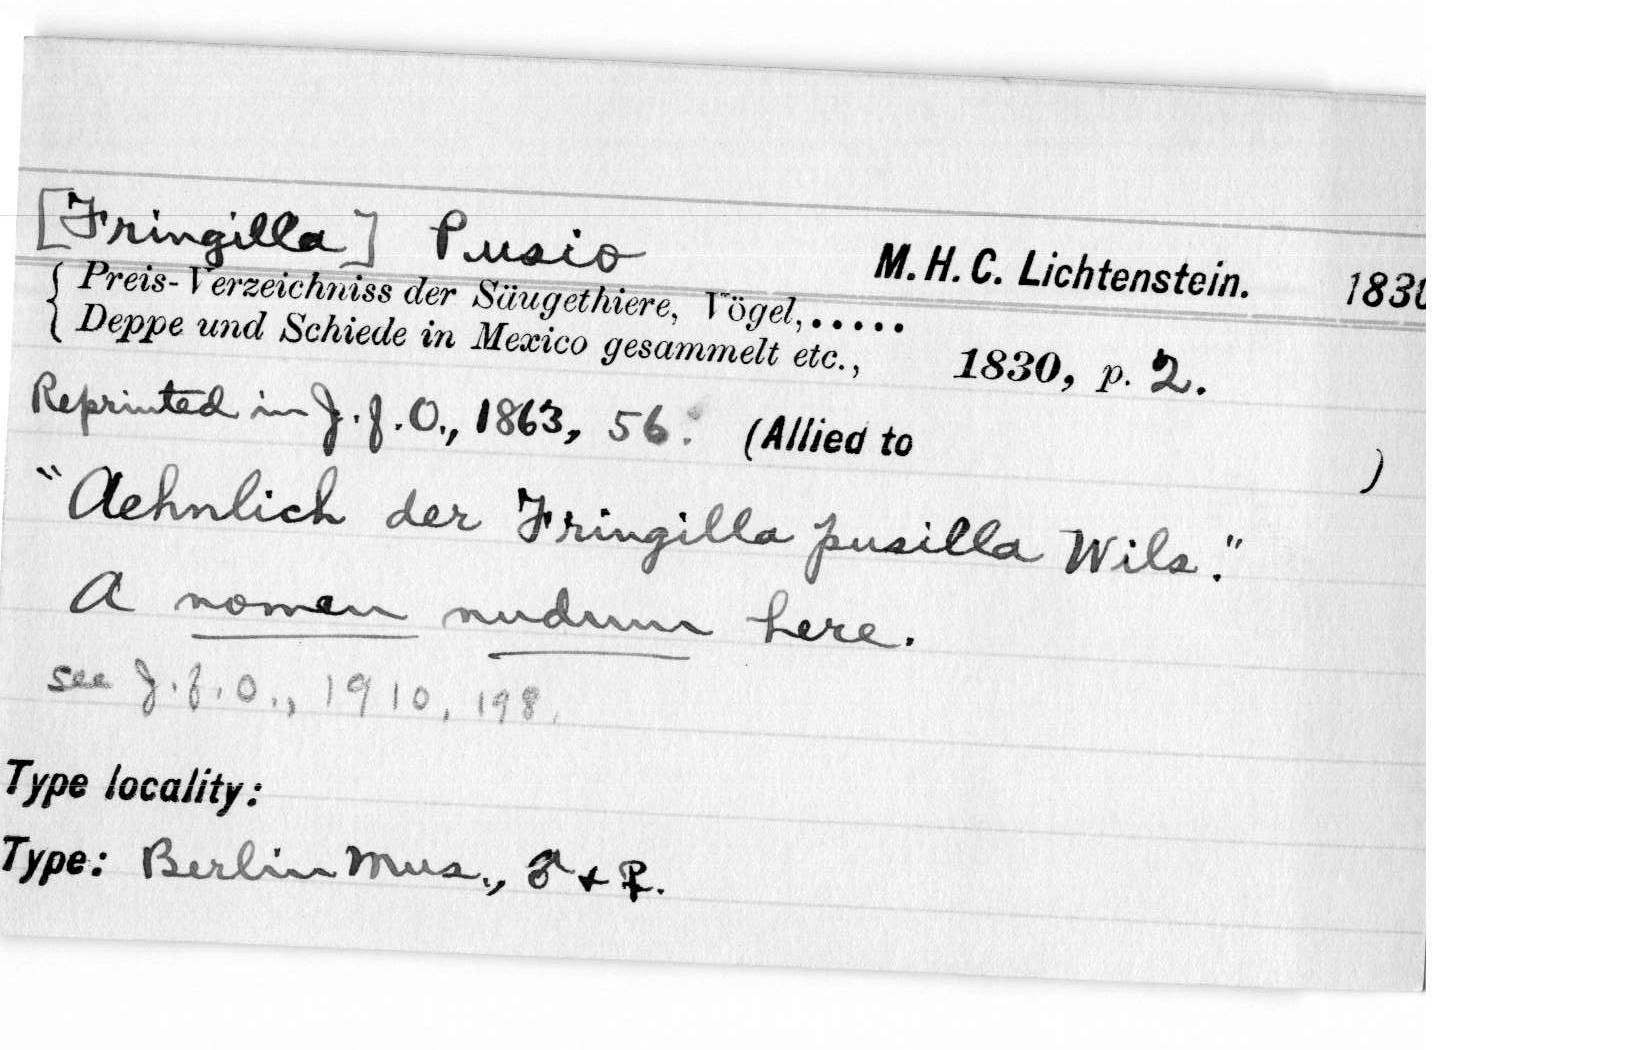 [Fringilla] Pusio M. H. C. Lichtenstein. 1830
{ Preis-Verzeichniss der Säugethiere, Vögel, . . . . .
Deppe und Schiede in Mexico gesammelt etc., 1830, p. 2.
Reprinted in J.f.O., 1863, 56. (Allied to )
"Aehnlich der Fringilla pusilla Wils."
A nomen nudum here.
see J.f.O., 1910, 198.
Type locality:
Type: Berlin Mus., ♂ + ♀.